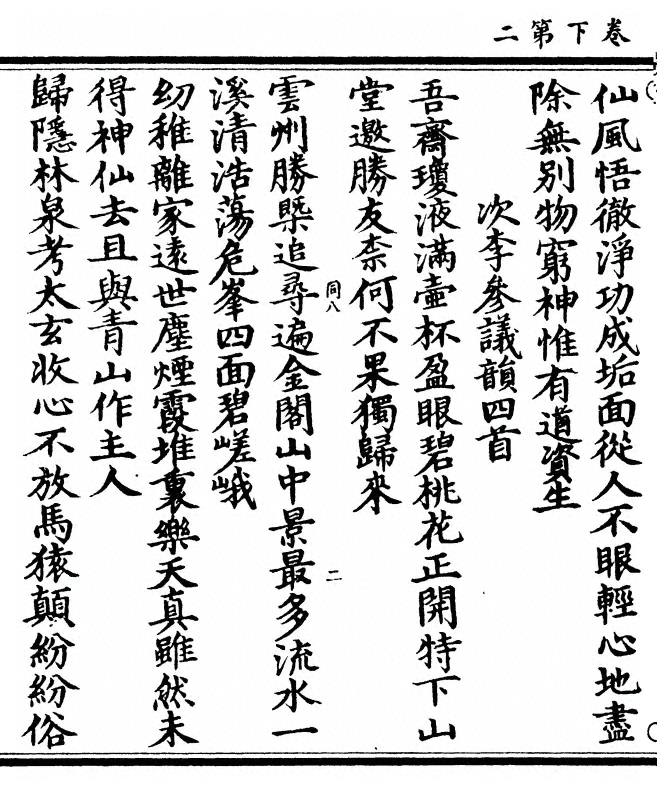 卷下第二
仙風悟徹淨功成垢面從人不眼輕心地盡
除無別物窮神惟有道資生
次李參議韻四首
吾齋瓊液滿壷杯盈眼碧桃花正開特下山
堂邀勝友柰何不果獨歸來
同八
二
雲州勝槩追尋遍金閣山中景最多流水一
溪清浩蕩危峯四面碧嵯峨
幼稚離家遠世塵煙霞堆裏樂天真雖然未
得神仙去且與青山作主人
歸隱林泉考太玄收心不放馬猿顛紛紛俗